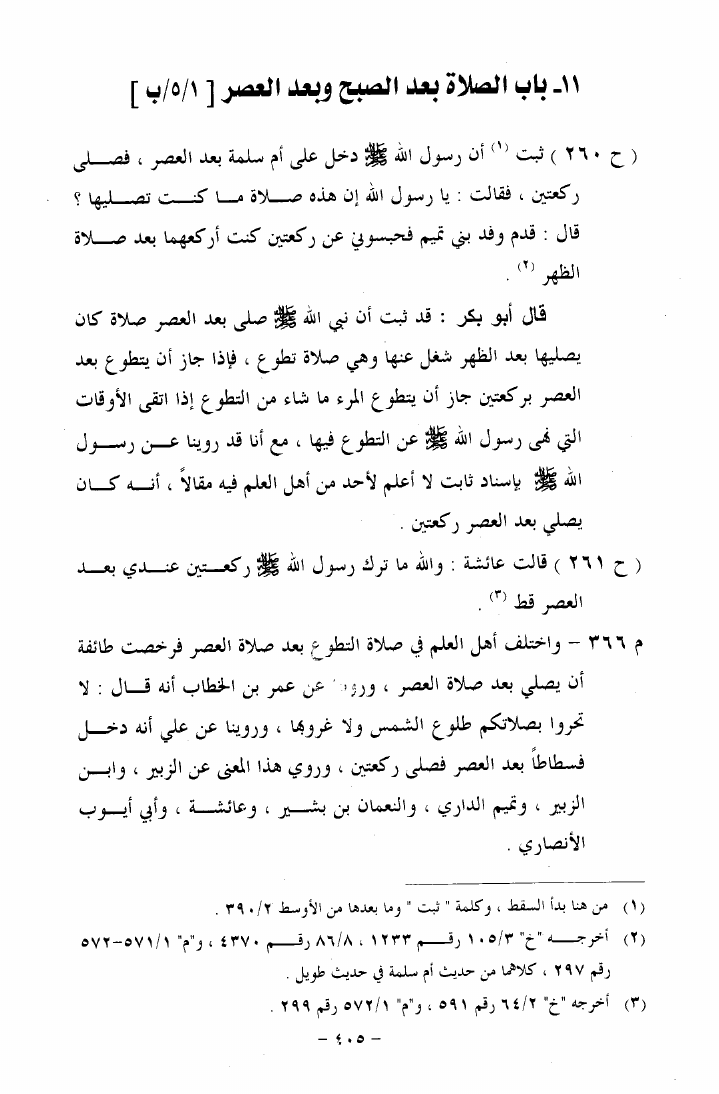 ١١ـ باب الصلاة بعد الصبح وبعد العصر [ ١/٥/ب ]
( ح ٢٦٠ ) ثبت (١) أن رسول الله ﷺ دخل على أم سلمة بعد العصر ، فصلى
ركعتين ، فقالت : يا رسول الله إن هذه صلاة ما كنت تصليها ؟
قال : قدم وفد بني تميم فحبسوني عن ركعتين كنت أركعهما بعد صلاة
الظهر (٢) .
قال أبو بكر : قد ثبت أن نبي الله ﷺ صلى بعد العصر صلاة كان
يصليها بعد الظهر شغل عنها وهي صلاة تطوع ، فإذا جاز أن يتطوع بعد
العصر بركعتين جاز أن يتطوع المرء ما شاء من التطوع إذا اتقى الأوقات
التي نهى رسول الله ﷺ عن التطوع فيها ، مع أنا قد روينا عن رسول
الله ﷺ بإسناد ثابت لا أعلم لأحد من أهل العلم فيه مقالاً ، أنه كان
يصلي بعد العصر ركعتين .
( ح ٢٦١ ) قالت عائشة : والله ما ترك رسول الله ﷺ ركعتين عندي بعد
العصر قط (٣) .
م ٣٦٦ – واختلف أهل العلم في صلاة التطوع بعد صلاة العصر فرخصت طائفة
أن يصلي بعد صلاة العصر ، عن عمر بن الخطاب أنه قال : لا
تحروا بصلاتكم طلوع الشمس ولا غروبها ، وروينا عن علي أنه دخل
فسطاطاً بعد العصر فصلى ركعتين ، وروي هذا المعنى عن الزبير ، وابن
الزبير ، وتميم الداري ، والنعمان بن بشير ، وعائشة ، وأبي أيوب
الأنصاري .
(١) من هنا بدأ السقط ، وكلمة " ثبت " وما بعدها من الأوسط ٣٩٠/٢ .
(٢) أخرجه "خ" ١٠٥/٣ رقم ١٢٣٣ ، ٨٦/٨ رقم ٤٣٧٠ ، و"م" ٥٧١/١–٥٧٢
رقم ٢٩٧ ، كلاهما من حديث أم سلمة في حديث طويل .
(٣) أخرجه "خ" ٦٤/٢ رقم ٥٩١ ، و"م" ٥٧٢/١ رقم ٢٩٩ .
– ٤٠٥ –